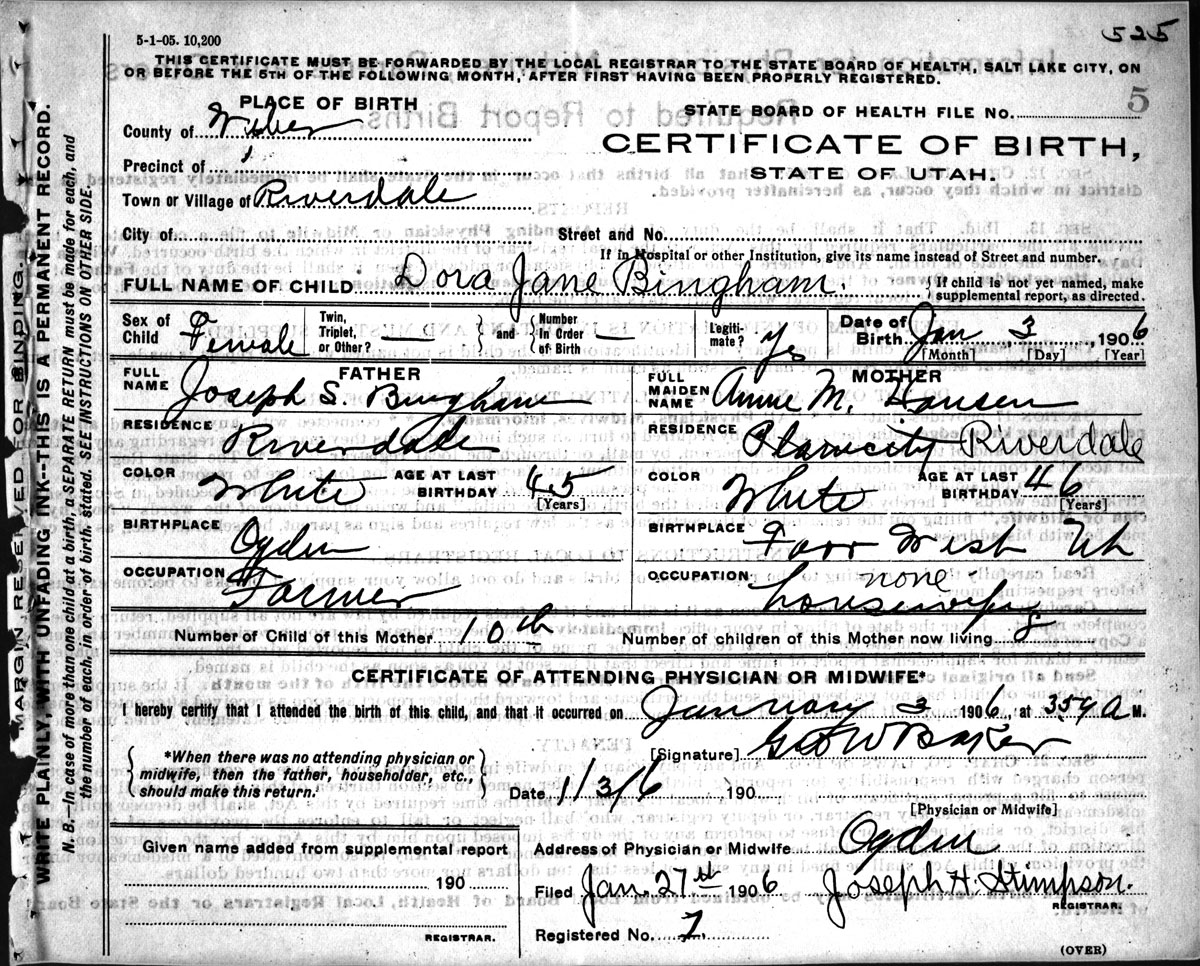 5-1-05. 10,200
525
THIS CERTIFICATE MUST BE FORWARDED BY THE LOCAL REGISTRAR TO THE STATE BOARD OF HEALTH, SALT LAKE CITY, ON
OR BEFORE THE 5TH OF THE FOLLOWING MONTH, AFTER FIRST HAVING BEEN PROPERLY REGISTERED.
5
PLACE OF BIRTH
STATE BOARD OF HEALTH FILE NO.
County of Weber
CERTIFICATE OF BIRTH,
Precinct of
STATE OF UTAH.
Town or Village of Riverdale
City of Street and No.
If in Hospital or other Institution, give its name instead of Street and number.
FULL NAME OF CHILD Dora Jane Bingham. { If child is not yet named, make
supplemental report, as directed.
Sex of Child Female Twin, Triplet, or Other? — } and { Number In Order of Birth — Legiti-mate? yes Date of Birth Jan 3, 1906
[Month] [Day] [Year]
FATHER MOTHER
FULL NAME Joseph S. Bingham FULL MAIDEN NAME Annie M. Hansen
RESIDENCE Riverdale RESIDENCE Plain City Riverdale
COLOR White AGE AT LAST BIRTHDAY 45 [Years] COLOR White AGE AT LAST BIRTHDAY 46 [Years]
BIRTHPLACE Ogden BIRTHPLACE Farr West Uh
OCCUPATION Farmer OCCUPATION none housewife
Number of Child of this Mother 10th Number of children of this Mother now living 8
CERTIFICATE OF ATTENDING PHYSICIAN OR MIDWIFE*
I hereby certify that I attended the birth of this child, and that it occurred on January 3 1906, at 359 A M.
{ *When there was no attending physician or
midwife, then the father, householder, etc.,
should make this return. }
[Signature] Geo W Baker
Date 1/3/6 190
[Physician or Midwife]
Given name added from supplemental report
190
REGISTRAR.
Address of Physician or Midwife Ogden
Filed Jan. 27th 1906 Joseph H. Stimpson.
REGISTRAR.
Registered No. 7.
(OVER)
MARGIN RESERVED FOR BINDING.
WRITE PLAINLY, WITH UNFADING INK--THIS IS A PERMANENT RECORD.
N. B.—In case of more than one child at a birth, a SEPARATE RETURN must be made for each, and
the number of each, in order of birth, stated. SEE INSTRUCTIONS ON OTHER SIDE.